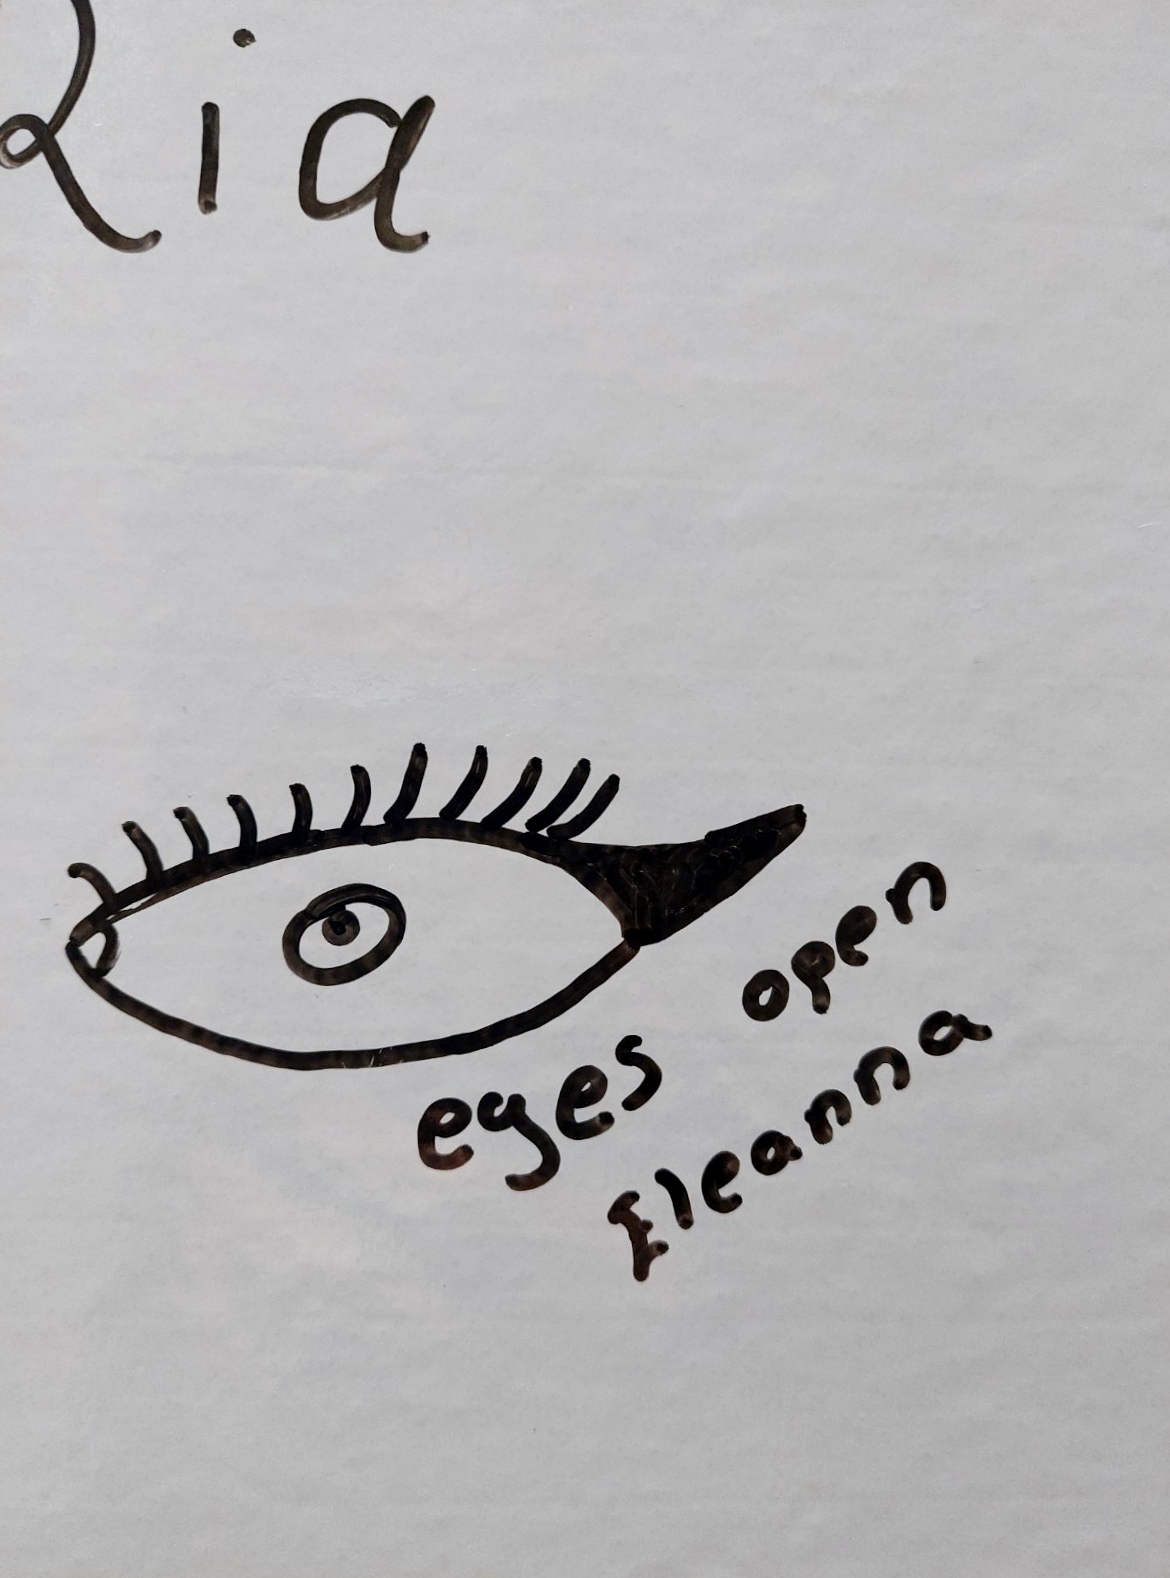 Ria
eyes open
Eleanna